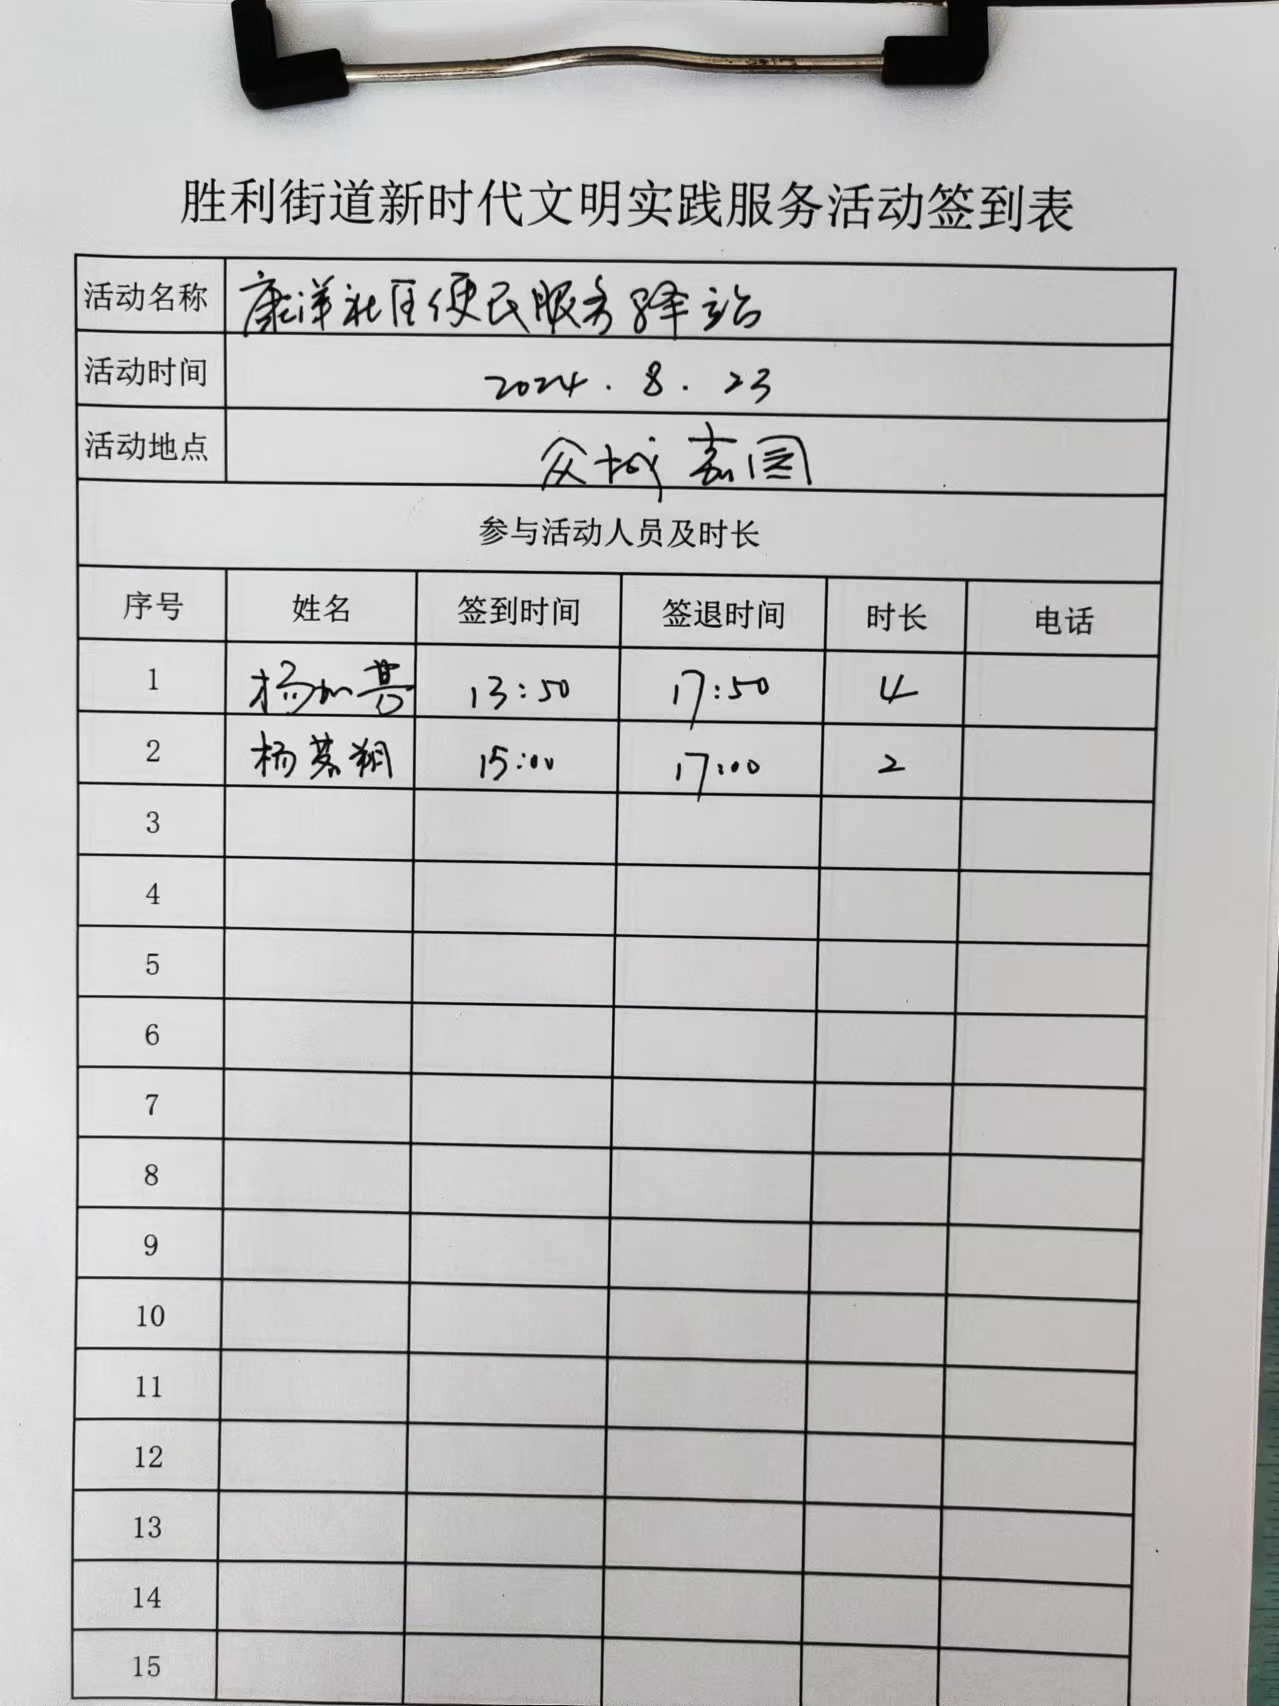 胜利街道新时代文明实践服务活动签到表
活动名称 康洋社区便民服务驿站
活动时间 2024.8.23
活动地点 众城嘉园
参与活动人员及时长
序号 姓名 签到时间 签退时间 时长 电话
1 杨 13:50 17:50 4
2 杨慕翔 15:00 17:00 2
3
4
5
6
7
8
9
10
11
12
13
14
15